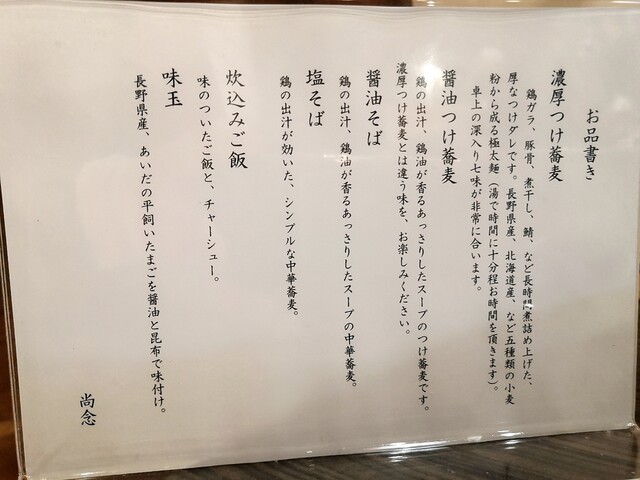 お品書き
濃厚つけ蕎麦
鶏ガラ、豚骨、煮干し、鯖、など長時間煮詰め上げた、
厚なつけダレです。長野県産、北海道産、など五種類の小麦
粉から成る極太麺（湯で時間に十分程お時間を頂きます）。
卓上の深入り七味が非常に合います。
醤油つけ蕎麦
鶏の出汁、鶏油が香るあっさりしたスープのつけ蕎麦です。
濃厚つけ蕎麦とは違う味を、お楽しみください。
醤油そば
鶏の出汁、鶏油が香るあっさりしたスープの中華蕎麦。
塩そば
鶏の出汁が効いた、シンプルな中華蕎麦。
炊込みご飯
味のついたご飯と、チャーシュー。
味玉
長野県産、あいだの平飼いたまごを醤油と昆布で味付け。
尚念